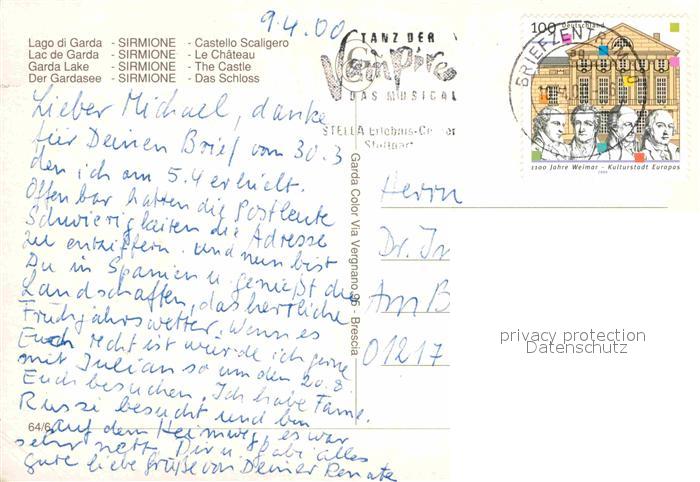 9.4.00
Lago di Garda - SIRMIONE - Castello Scaligero
Lac de Garda - SIRMIONE - Le Château
Garda Lake - SIRMIONE - The Castle
Der Gardasee - SIRMIONE - Das Schloss
TANZ DER
Vampire
DAS MUSICAL
STELLA Erlebnis-Center
Stuttgart
BRIEFZENTRUM
100 Deutschland
1100 Jahre Weimar - Kulturstadt Europas
1999
Lieber Michael, danke
für Deinen Brief vom 30.3
den ich am 5.4 erhielt.
Offenbar hatten die Postleute
Schwierigkeiten die Adresse
zu entziffern. Und nun bist
Du in Spanien u. genießt die
Landschaften, das herrliche
Frühjahrswetter. Wenn es
Euch recht ist würde ich gerne
mit Julian so um den 20.8
Euch besuchen. Ich habe Fam.
Russi besucht und bin
auf dem Heimweg, es war
sehr nett. Dir u. Gabi alles
gute liebe Grüße von Deiner Renate
64/6
Garda Color Via Vergnano, 95 - Brescia
Herrn
Dr. In
Am B
01217
privacy protection
Datenschutz